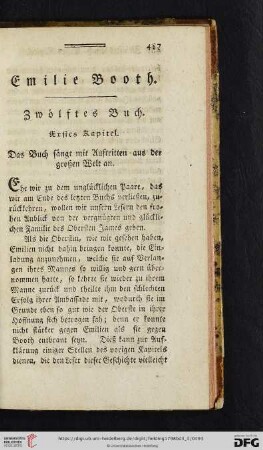 487
Emilie Booth.
Zwölftes Buch.
Erstes Kapitel.
Das Buch fängt mit Auftritten aus der
großen Welt an.
Ehe wir zu dem unglücklichen Paare, das
wir am Ende des letzten Buchs verließen, zu-
rückkehren, wollen wir unsern Lesern den fro-
hen Anblick von der vergnügten und glückli-
chen Familie des Obersten James geben.
Als die Oberstin, wie wir gesehen haben,
Emilien nicht dahin bringen konnte, die Ein-
ladung anzunehmen, welche sie auf Verlan-
gen ihres Mannes so willig und gern über-
nommen hatte, so kehrte sie wieder zu ihrem
Manne zurück und theilte ihm den schlechten
Erfolg ihrer Ambassade mit, wodurch sie im
Grunde eben so gut wie der Oberste in ihrer
Hoffnung sich betrogen sah; denn er konnte
nicht stärker gegen Emilien als sie gegen
Booth entbrant seyn. Dieß kann zur Auf-
klärung einiger Stellen des vorigen Kapitels
dienen, die den Leser dieser Geschichte vielleicht
UNIVERSITÄTS-BIBLIOTHEK HEIDELBERG
DFG